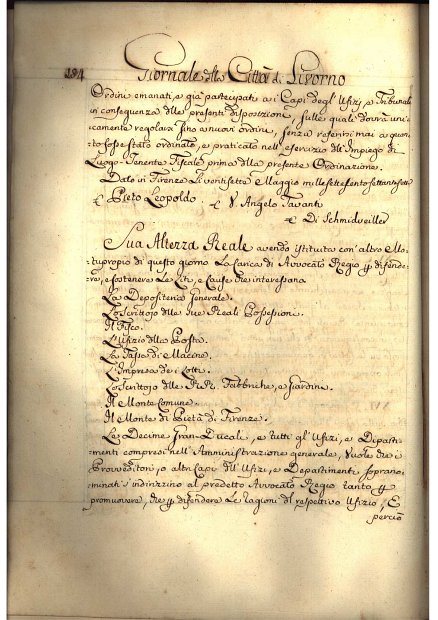 184
Giornale della Città di Livorno
Ordini emanati, e già partecipati ai Capi degl' Ufizj, e Tribunali
in consequenza delle presenti disposizioni, sulle quali dovrà uni=
camente regolarsi fino a nuovi ordini, senza referirsi mai a quan=
to fosse stato ordinato, e praticato nell' esercizio dell' Impiego di
Luogo-Tenente Fiscale prima della presente Ordinazione.
Dato in Firenze li ventisette Maggio mille settecento settantasette
Pietro Leopoldo. V. Angelo Tavanti
Di Schmidveiller
Sua Altezza Reale avendo istituita con' altro Mo=
=tuproprio di questo giorno la Carica di Avvocato Regio p difende=
=re, e sostenere le Liti, e Cause che interessano
La Depositeria Generale.
Lo Scrittojo delle sue Reali Possessioni.
Il Fisco.
L'Ufizio della Posta.
La Tassa di Macine.
L'Impresa dei Lotti.
Lo Scrittojo delle RR. Fabbriche, e Giardini.
Il Monte Comune.
Il Monte di Pietà di Firenze.
Le Decime Gran-Ducali, e tutti gl' Ufizj, e Diparti=
=menti compresi nell' Amministrazione generale, Vuole che i
Provveditori, o altri Capi dell' Ufizj, e Departimenti soprano=
=minati s' indirizzino al predetto Avvocato Regio tanto p
promuovere, che p difendere le ragioni del respettivo Ufizio, E
perciò